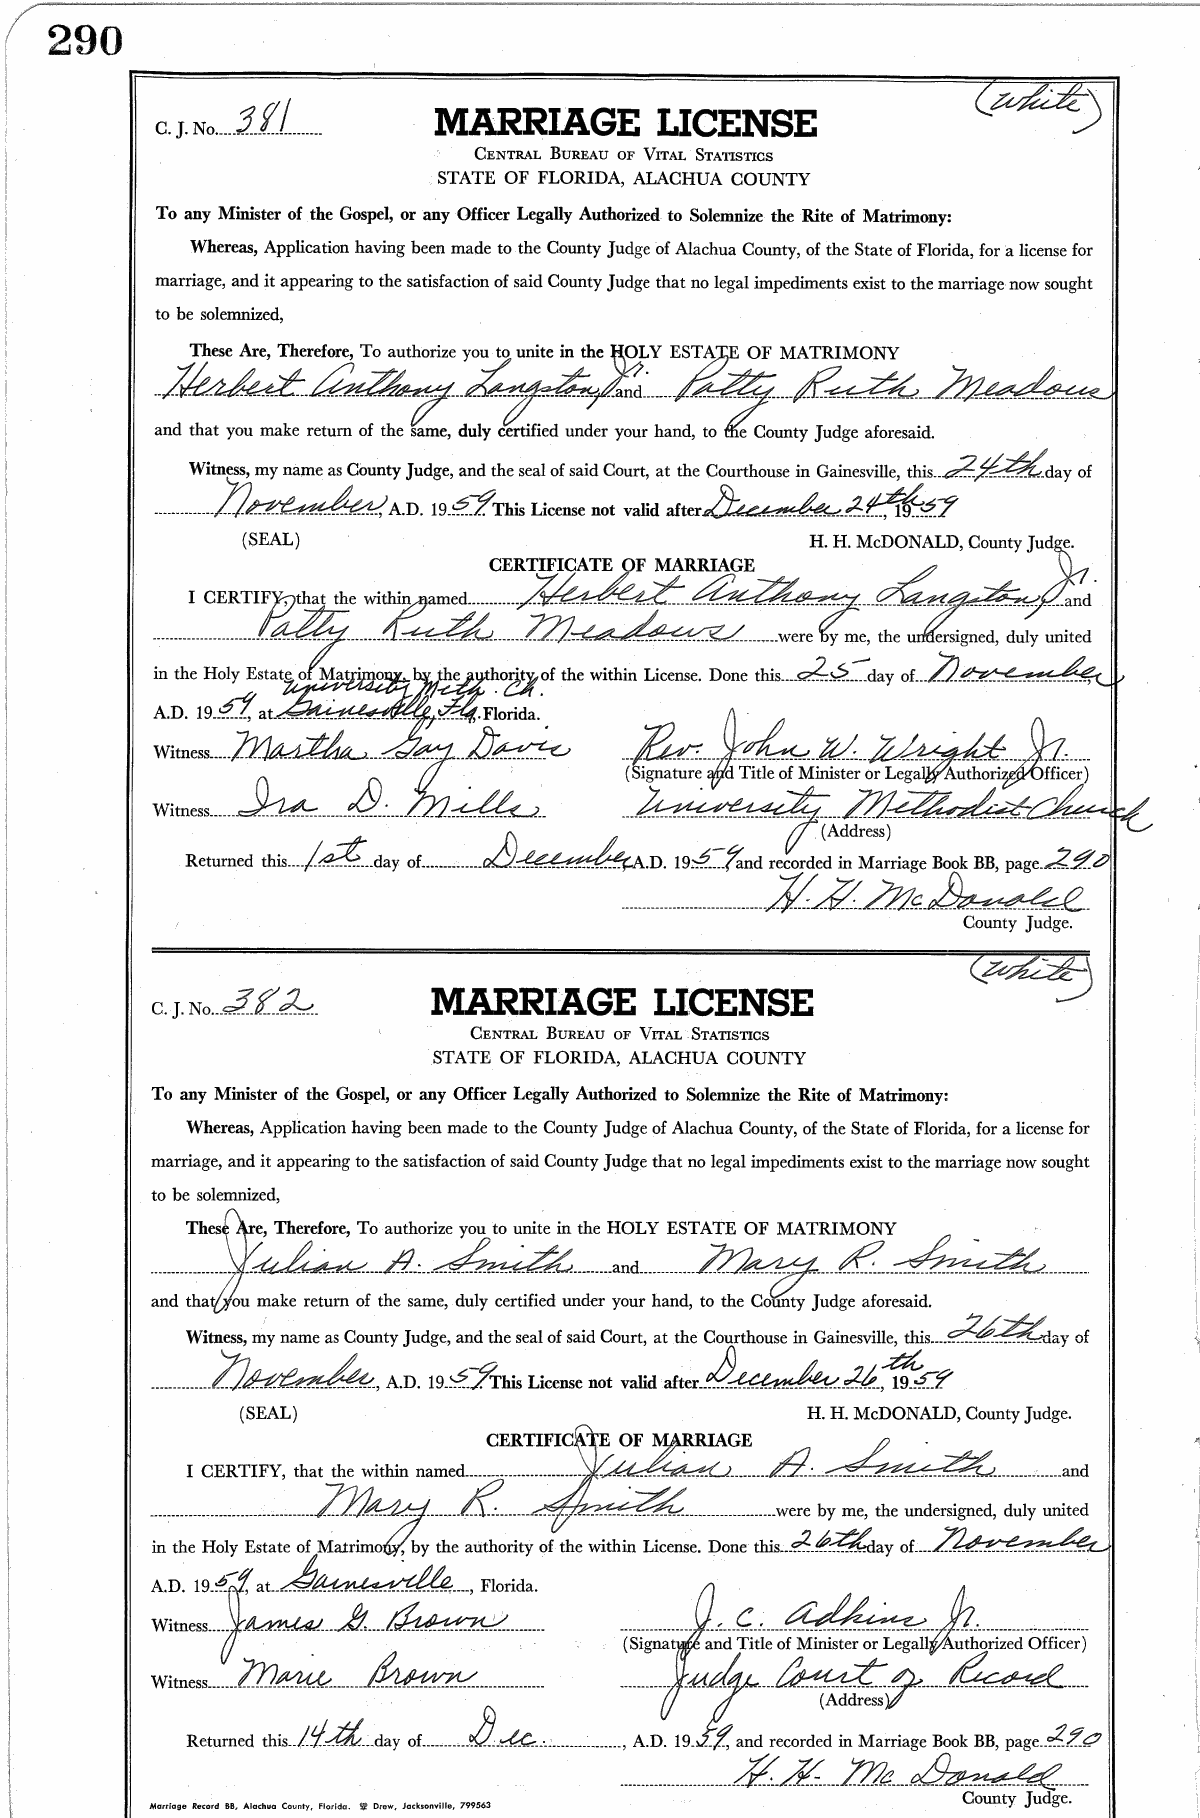 290
(White)
C. J. No. 381
MARRIAGE LICENSE
CENTRAL BUREAU OF VITAL STATISTICS
STATE OF FLORIDA, ALACHUA COUNTY
To any Minister of the Gospel, or any Officer Legally Authorized to Solemnize the Rite of Matrimony:
Whereas, Application having been made to the County Judge of Alachua County, of the State of Florida, for a license for
marriage, and it appearing to the satisfaction of said County Judge that no legal impediments exist to the marriage now sought
to be solemnized,
These Are, Therefore, To authorize you to unite in the HOLY ESTATE OF MATRIMONY
Herbert Anthony Langston, Jr. and Patty Ruth Meadows
and that you make return of the same, duly certified under your hand, to the County Judge aforesaid.
Witness, my name as County Judge, and the seal of said Court, at the Courthouse in Gainesville, this 24th day of
November, A.D. 1959. This License not valid after December 24th, 1959
(SEAL) H. H. McDONALD, County Judge.
CERTIFICATE OF MARRIAGE
I CERTIFY, that the within named Herbert Anthony Langston, Jr. and
Patty Ruth Meadows were by me, the undersigned, duly united
in the Holy Estate of Matrimony, by the authority of the within License. Done this 25 day of November
University Meth. Ch.
A.D. 1959, at Gainesville, Fla. Florida.
Witness Martha Gay Davis Rev. John W. Wright Jr.
(Signature and Title of Minister or Legally Authorized Officer)
Witness Ira D. Mills University Methodist Church
(Address)
Returned this 1st day of December, A.D. 1959, and recorded in Marriage Book BB, page 290
H. H. McDonald
County Judge.
(White)
C. J. No. 382
MARRIAGE LICENSE
CENTRAL BUREAU OF VITAL STATISTICS
STATE OF FLORIDA, ALACHUA COUNTY
To any Minister of the Gospel, or any Officer Legally Authorized to Solemnize the Rite of Matrimony:
Whereas, Application having been made to the County Judge of Alachua County, of the State of Florida, for a license for
marriage, and it appearing to the satisfaction of said County Judge that no legal impediments exist to the marriage now sought
to be solemnized,
These Are, Therefore, To authorize you to unite in the HOLY ESTATE OF MATRIMONY
Julian A. Smith and Mary R. Smith
and that you make return of the same, duly certified under your hand, to the County Judge aforesaid.
Witness, my name as County Judge, and the seal of said Court, at the Courthouse in Gainesville, this 26th day of
November, A.D. 1959. This License not valid after December 26th, 1959
(SEAL) H. H. McDONALD, County Judge.
CERTIFICATE OF MARRIAGE
I CERTIFY, that the within named Julian A. Smith and
Mary R. Smith were by me, the undersigned, duly united
in the Holy Estate of Matrimony, by the authority of the within License. Done this 26th day of November
A.D. 1959, at Gainesville, Florida.
Witness James G. Brown J. C. Adkins Jr.
(Signature and Title of Minister or Legally Authorized Officer)
Witness Marie Brown Judge Court of Record
(Address)
Returned this 14th day of Dec., A.D. 1959, and recorded in Marriage Book BB, page 290
H. H. McDonald
County Judge.
Marriage Record BB, Alachua County, Florida. Drew, Jacksonville, 799563